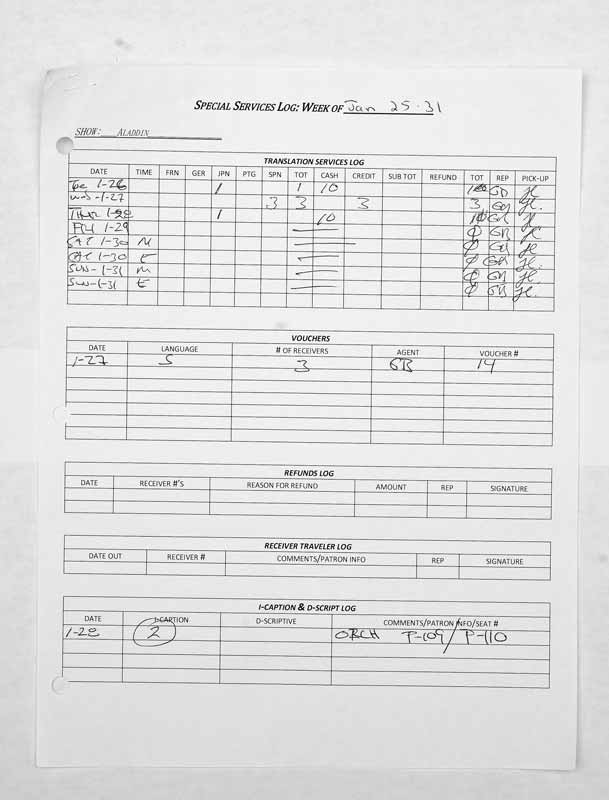 SPECIAL SERVICES LOG: WEEK OF Jan 25-31
SHOW: ALADDIN
TRANSLATION SERVICES LOG
DATE TIME FRN GER JPN PTG SPN TOT CASH CREDIT SUB TOT REFUND TOT REP PICK-UP
Tue 1-26 1 1 10 GB JC
Wed-1-27 3 3 3 3 GB JC.
THUR 1-28 1 10 10 GB JC
FRI 1-29 Ø GB JC
SAT 1-30 M Ø GB JC.
SAT 1-30 E Ø GB JC.
SUN-1-31 M Ø GB JC.
SUN-1-31 E Ø GB JC.
VOUCHERS
DATE LANGUAGE # OF RECEIVERS AGENT VOUCHER #
1-27 S 3 GB 14
REFUNDS LOG
DATE RECEIVER #'S REASON FOR REFUND AMOUNT REP SIGNATURE
RECEIVER TRAVELER LOG
DATE OUT RECEIVER # COMMENTS/PATRON INFO REP SIGNATURE
I-CAPTION & D-SCRIPT LOG
DATE I-CAPTION D-SCRIPTIVE COMMENTS/PATRON INFO/SEAT #
1-28 2 ORCH P-109/P-110